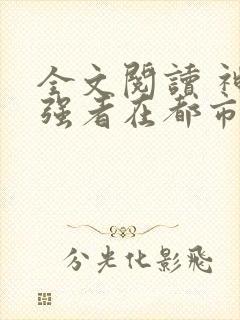 全文閱讀 神
强者在都市
分光化影飛